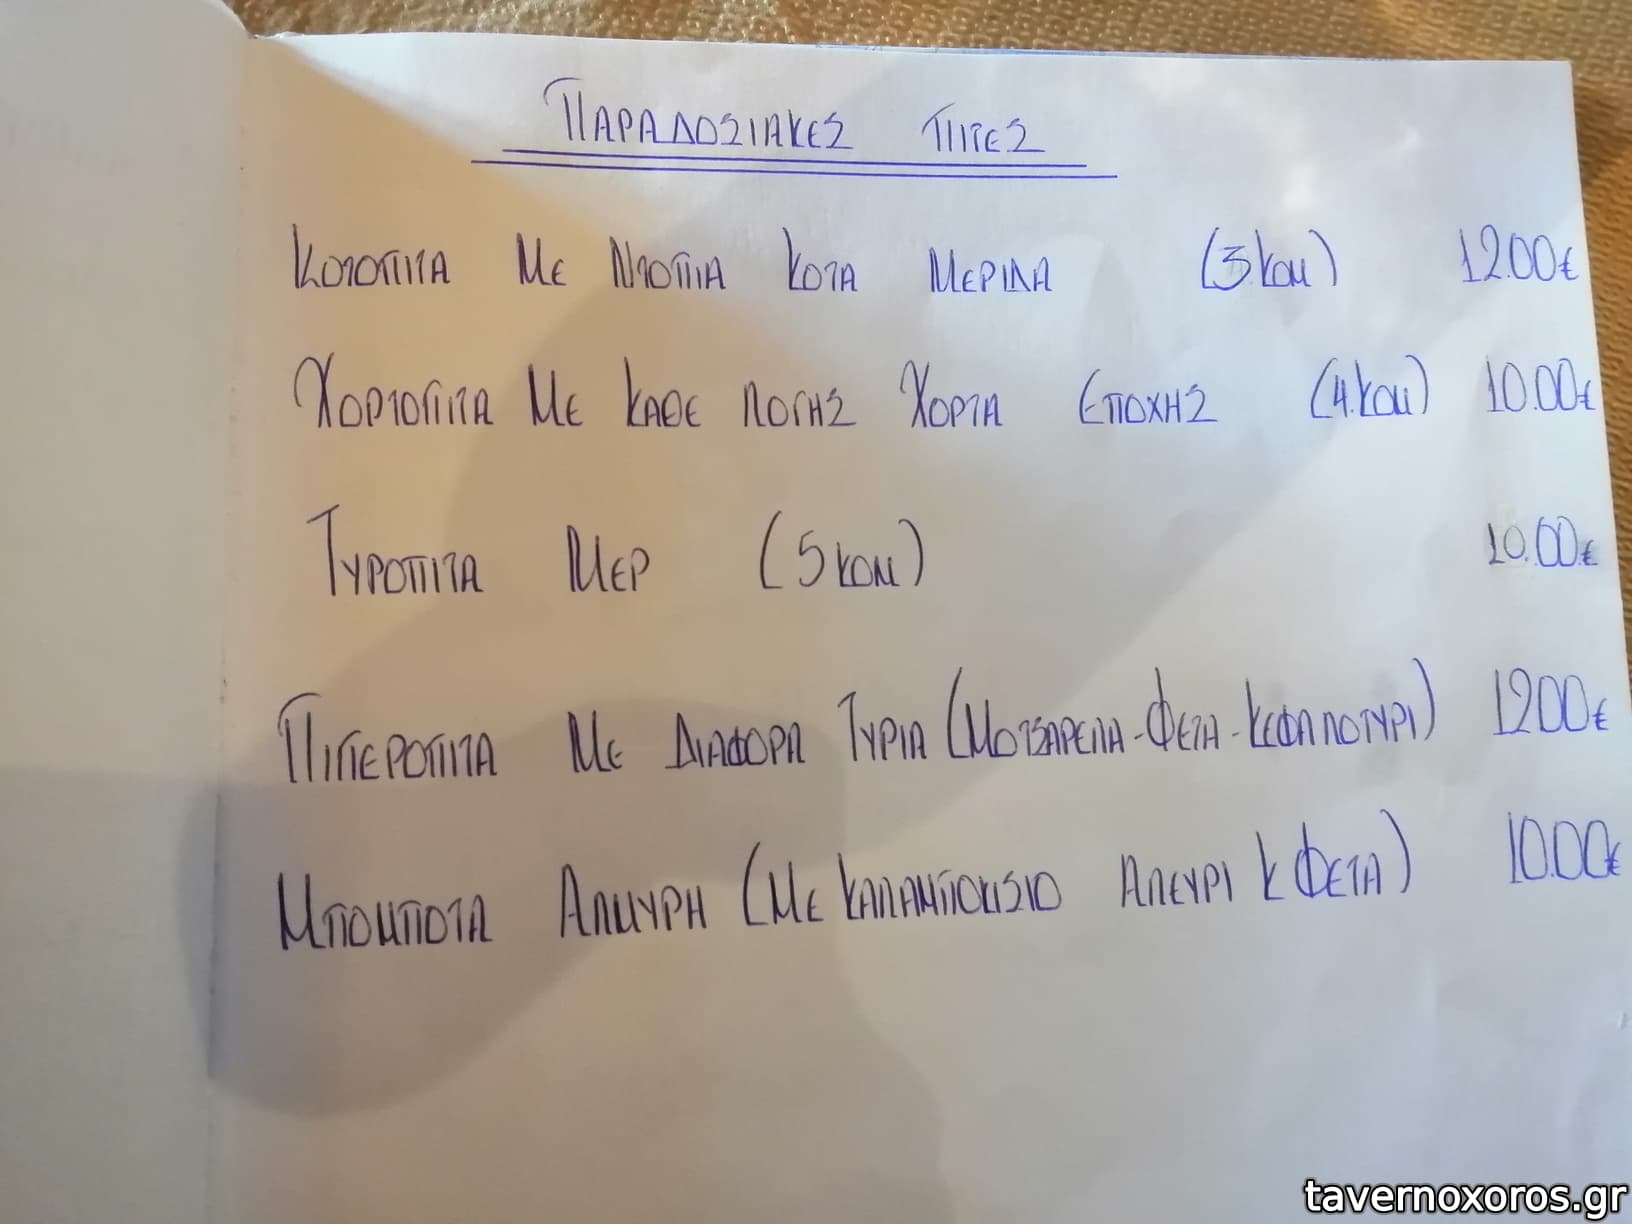 ΠΑΡΑΔΟΣΙΑΚΕΣ ΠΙΤΕΣ
ΚΟΤΟΠΙΤΑ ΜΕ ΝΤΟΠΙΑ ΚΟΤΑ ΜΕΡΙΔΑ (3.ΚΟΜ) 12.00€
ΧΟΡΤΟΠΙΤΑ ΜΕ ΚΑΘΕ ΛΟΓΗΣ ΧΟΡΤΑ ΕΠΟΧΗΣ (4.ΚΟΜ) 10.00€
ΤΥΡΟΠΙΤΑ ΜΕΡ (5 ΚΟΜ) 10.00€
ΠΙΠΕΡΟΠΙΤΑ ΜΕ ΔΙΑΦΟΡΑ ΤΥΡΙΑ (ΜΟΤΣΑΡΕΛΑ-ΦΕΤΑ-ΚΕΦΑΛΟΤΥΡΙ) 12.00€
ΜΠΟΜΠΟΤΑ ΑΛΜΥΡΗ (ΜΕ ΚΑΛΑΜΠΟΚΙΣΙΟ ΑΛΕΥΡΙ Κ ΦΕΤΑ) 10.00€
tavernoxoros.gr